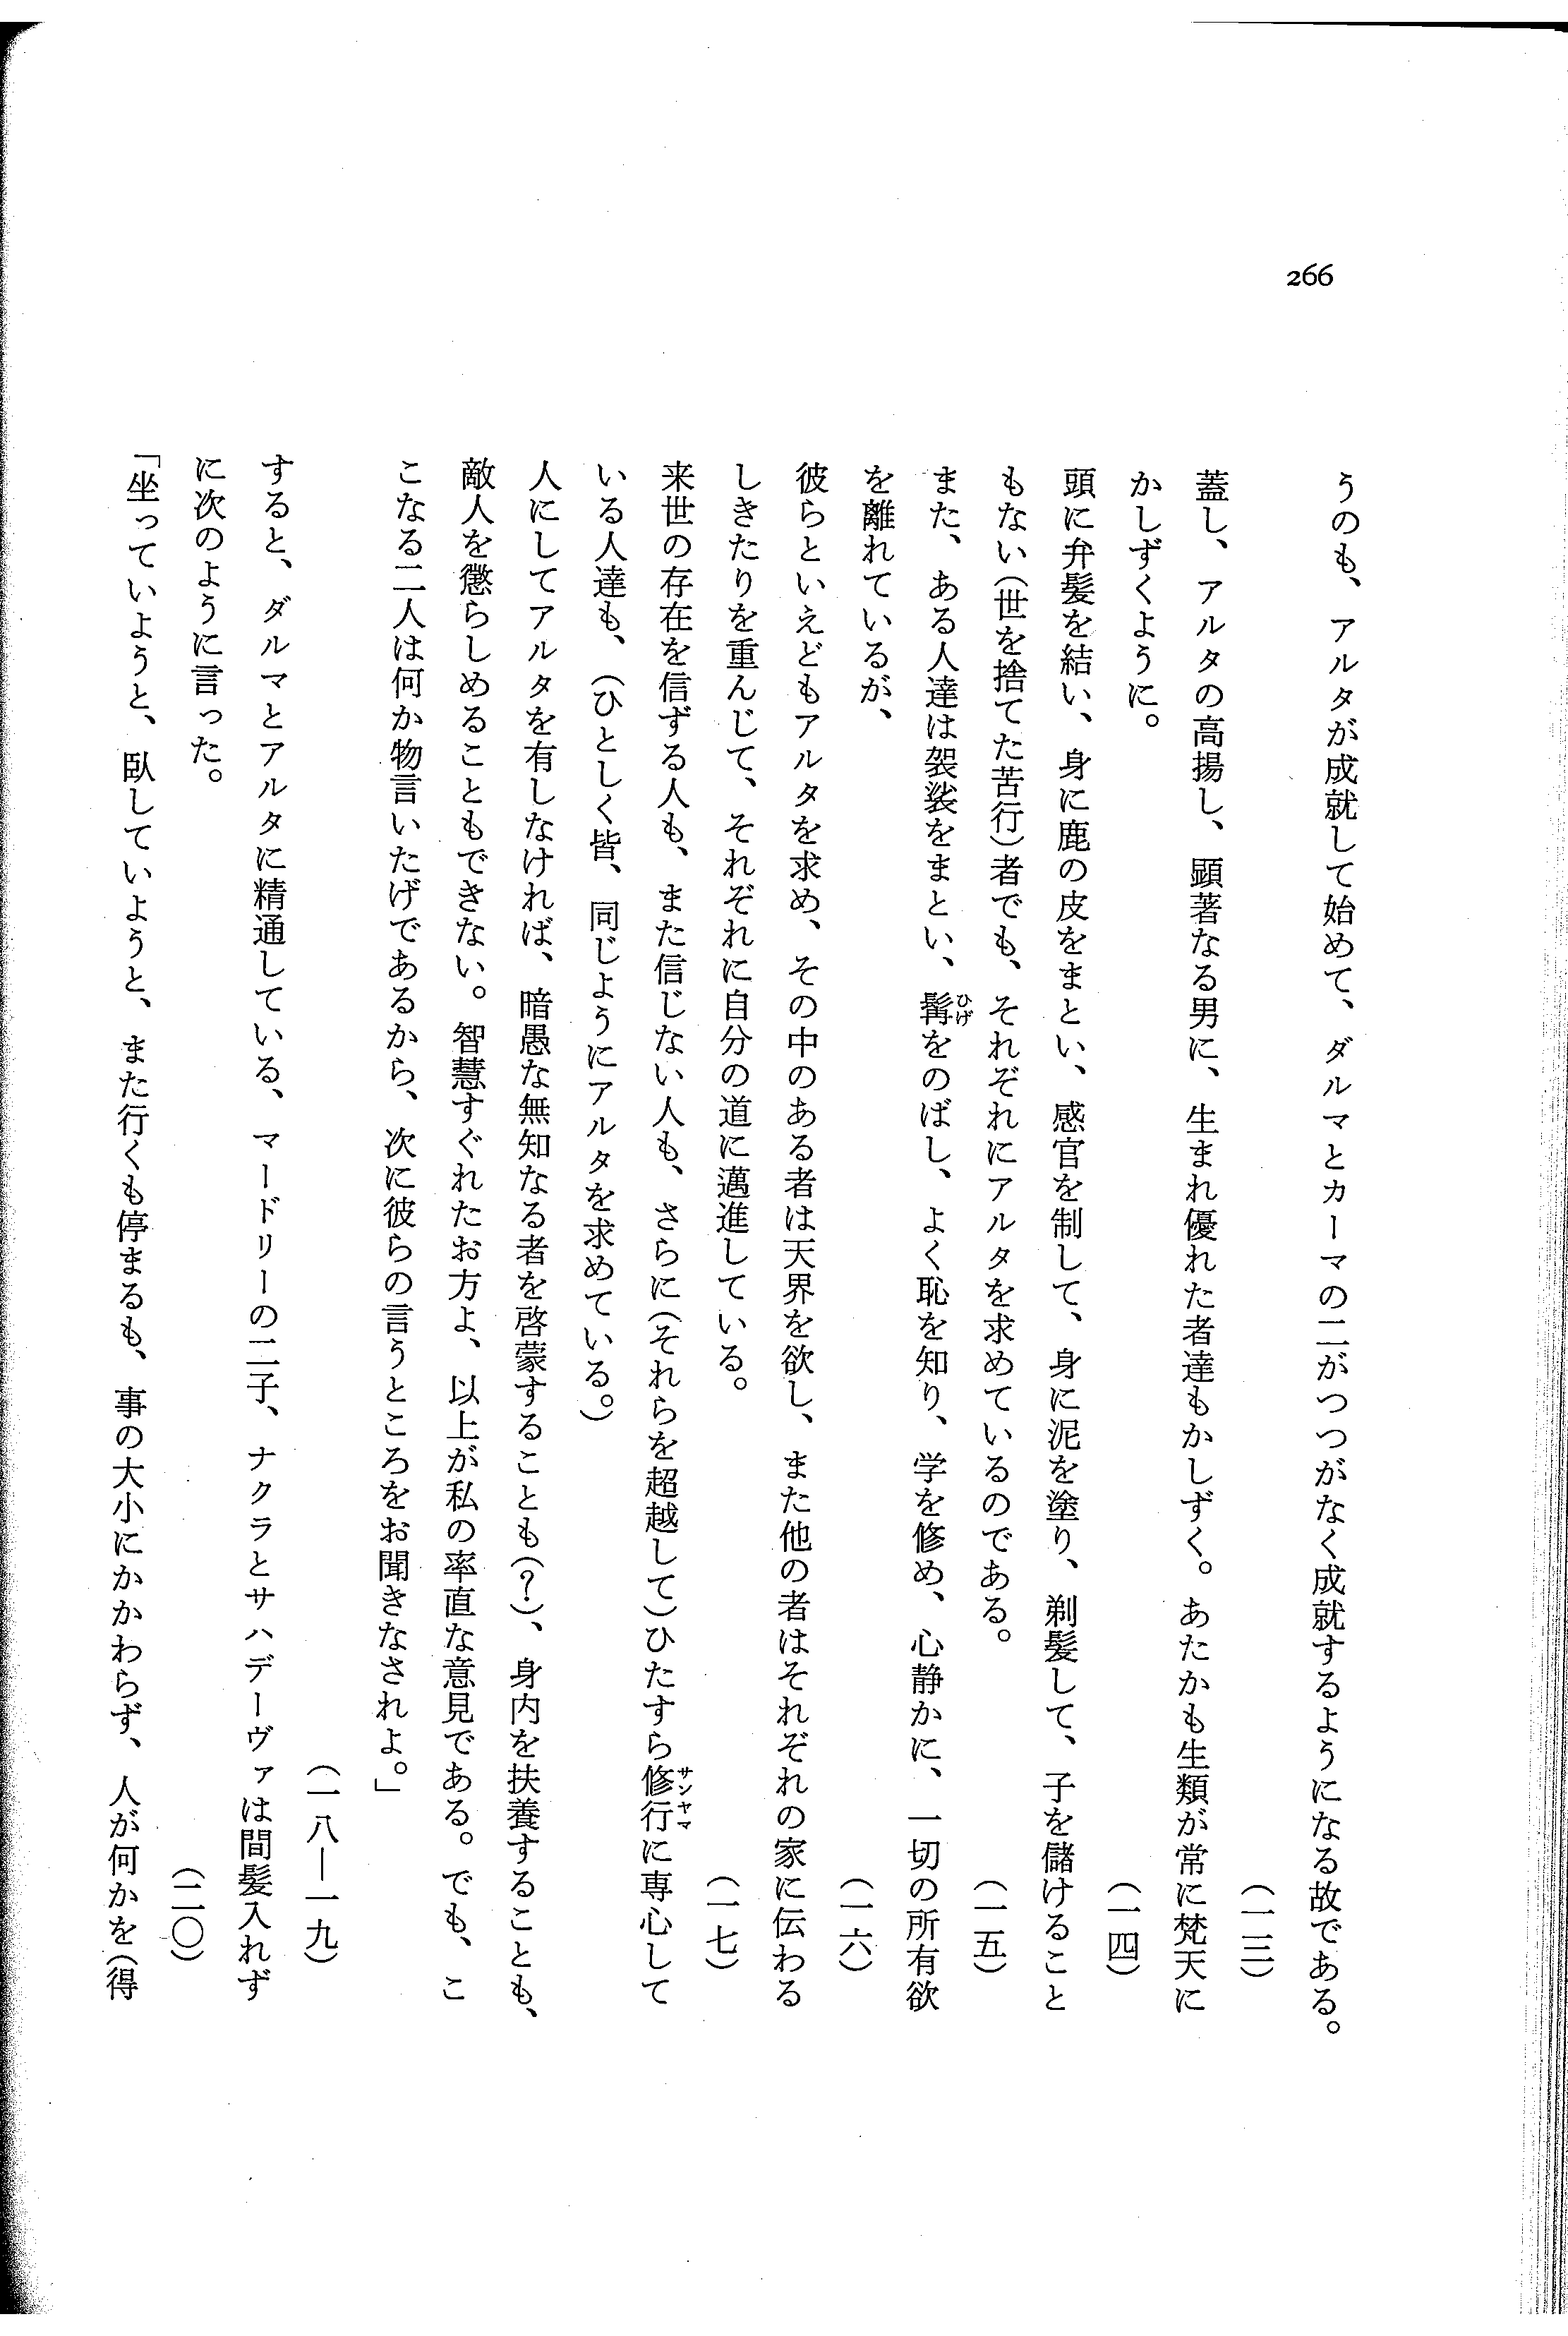 266
うのも、アルタが成就して始めて、ダルマとカーマの二がつつがなく成就するようになる故である。
（一三）
蓋し、アルタの高揚し、顕著なる男に、生まれ優れた者達もかしずく。あたかも生類が常に梵天に
かしずくように。
（一四）
頭に弁髪を結い、身に鹿の皮をまとい、感官を制して、身に泥を塗り、剃髪して、子を儲けること
もない（世を捨てた苦行）者でも、それぞれにアルタを求めているのである。
（一五）
また、ある人達は袈裟をまとい、髯をのばし、よく恥を知り、学を修め、心静かに、一切の所有欲
ひげ
を離れているが、
（一六）
彼らといえどもアルタを求め、その中のある者は天界を欲し、また他の者はそれぞれの家に伝わる
しきたりを重んじて、それぞれに自分の道に邁進している。
（一七）
来世の存在を信ずる人も、また信じない人も、さらに（それらを超越して）ひたすら修行に専心して
サンヤマ
いる人達も、（ひとしく皆、同じようにアルタを求めている。）
人にしてアルタを有しなければ、暗愚な無知なる者を啓蒙することも（？）、身内を扶養することも、
敵人を懲らしめることもできない。智慧すぐれたお方よ、以上が私の率直な意見である。でも、こ
こなる二人は何か物言いたげであるから、次に彼らの言うところをお聞きなされよ。」
（一八―一九）
すると、ダルマとアルタに精通している、マードリーの二子、ナクラとサハデーヴァは間髪入れず
に次のように言った。
（二〇）
「坐っていようと、臥していようと、また行くも停まるも、事の大小にかかわらず、人が何かを（得